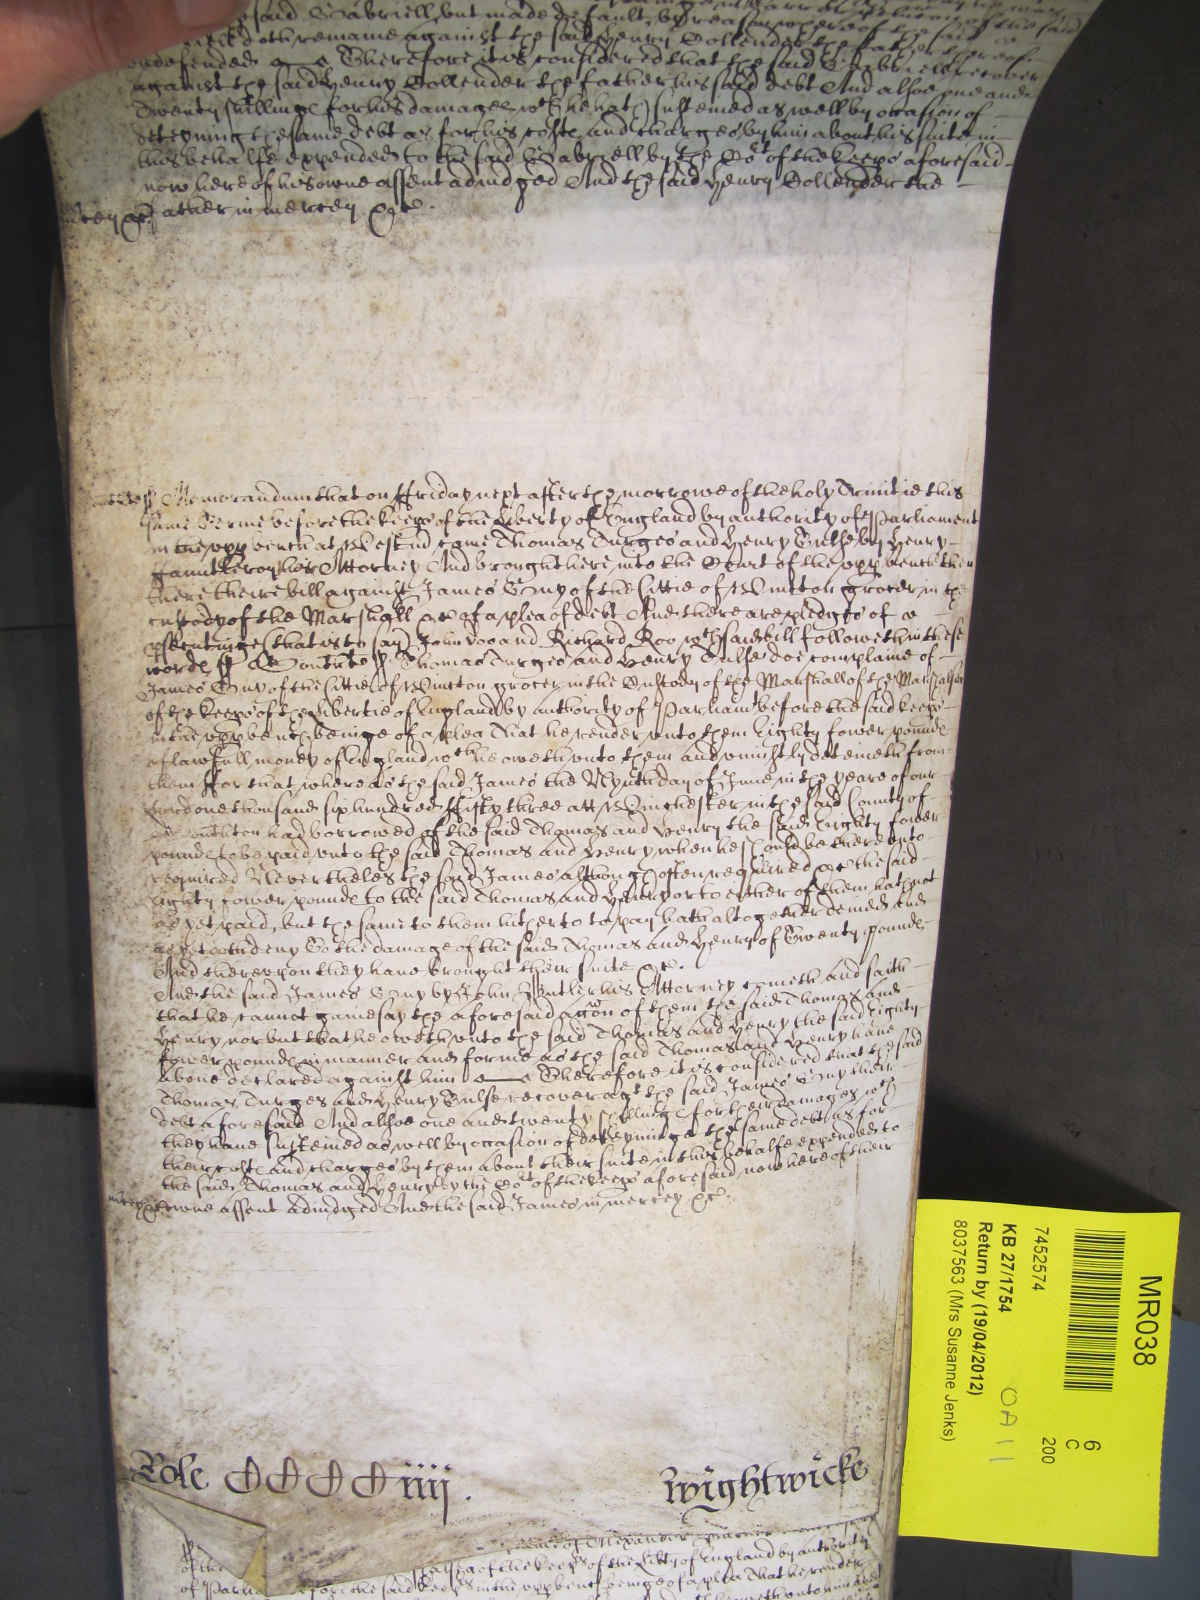 said Gabriell, but made default, by reason whereof the said
doth remaine against the said Henry Gollender the father thereof
undefended Therefore it is considered that the said Gabriell recover
against the said Henry Gollender the father his said debt And alsoe one and
Twenty shillinge for his damages wch he hath susteined as well by occasion of
deteyning the same debt as for his coste and charges by him about his suite in
this behalfe expended to the said Gabriell by the Cort of the keeps aforesaid
now here of his owne assent adiudged And the said Henry Gollender the
father in mercey &c.
Memorandum that on ffriday next after the morrowe of the holy Trinitie this
same Terme before the keeps of the Liberty of England by authority of Parliament
in the upp bench at Westm came Thomas Turges and Henry Hulse by Henry
ffauntleroy his Attorney And brought here into the Court of the upp bench then
there theire bill against James Guy of the Cittie of Winton grocer in the
custody of the Marshall &c of a plea of debt And there are pledges of
psecutinge that is to say John Doo and Richard Roo wch said bill followeth in these
words ss Thomas Turges and Henry Hulse doe complaine of
James Guy of the Cittie of Winton grocer in the Custody of the Marshall of the Marshalsea
of the keeps of the Libertie of England by authority of Parliamt before the said keeps
in the upp bench beinge of a plea That he render unto them Eighty fower pounde
of lawfull money of England wch he oweth unto them and uniustly deteineth from
them ffor that whereas the said James the Nynth day of June in the yeare of our
Lord one thousand six hundred ffifty three att Winchester in the said County of
Southton had borrowed of the said Thomas and Henry the said Eighty fower
pounde to be paid unto the said Thomas and Henry when he should be thereunto
required Nevertheles the said James although often required &c the said
Eighty fower pounde to the said Thomas and Henry or to either of them hath not
as yet paid, but the same to them hitherto to pay hath altogether denied and
as yet doth deny To the damage of the said Thomas and Henry of Twenty pounde
And thereupon they have brought their suite &c.
And the said James Guy by John Butler his Attorney cometh and saith
that he cannot gainesay the aforesaid accon of them the said Thomas and
Henry nor but that he oweth unto the said Thomas and Henry the said Eighty
fower pounde in manner and forme as the said Thomas and Henry have
above declared against him Therefore it is considered that the said
Thomas Turges and Henry Hulse recover agt the said James Guy their
debt aforesaid And alsoe one and twenty shillinge for their damages wch
they have susteined as well by occasion of deteyninge the same debt as for
their coste and charges by them about their suite in this behalfe expended to
the said Thomas and Henry by the Cort of the keeps aforesaid now here of their
owne assent adiudged And the said James in mercey &c.
Role CCCC iiij.
Wightwicke
of the keeps of the Libty of England by authority
of Parlia before the said keeps in the upp bench beinge of a plea That he render
MR038
6
C
200
7452574
KB 27/1754
Return by (19/04/2012)
8037563 (Mrs Susanne Jenks)